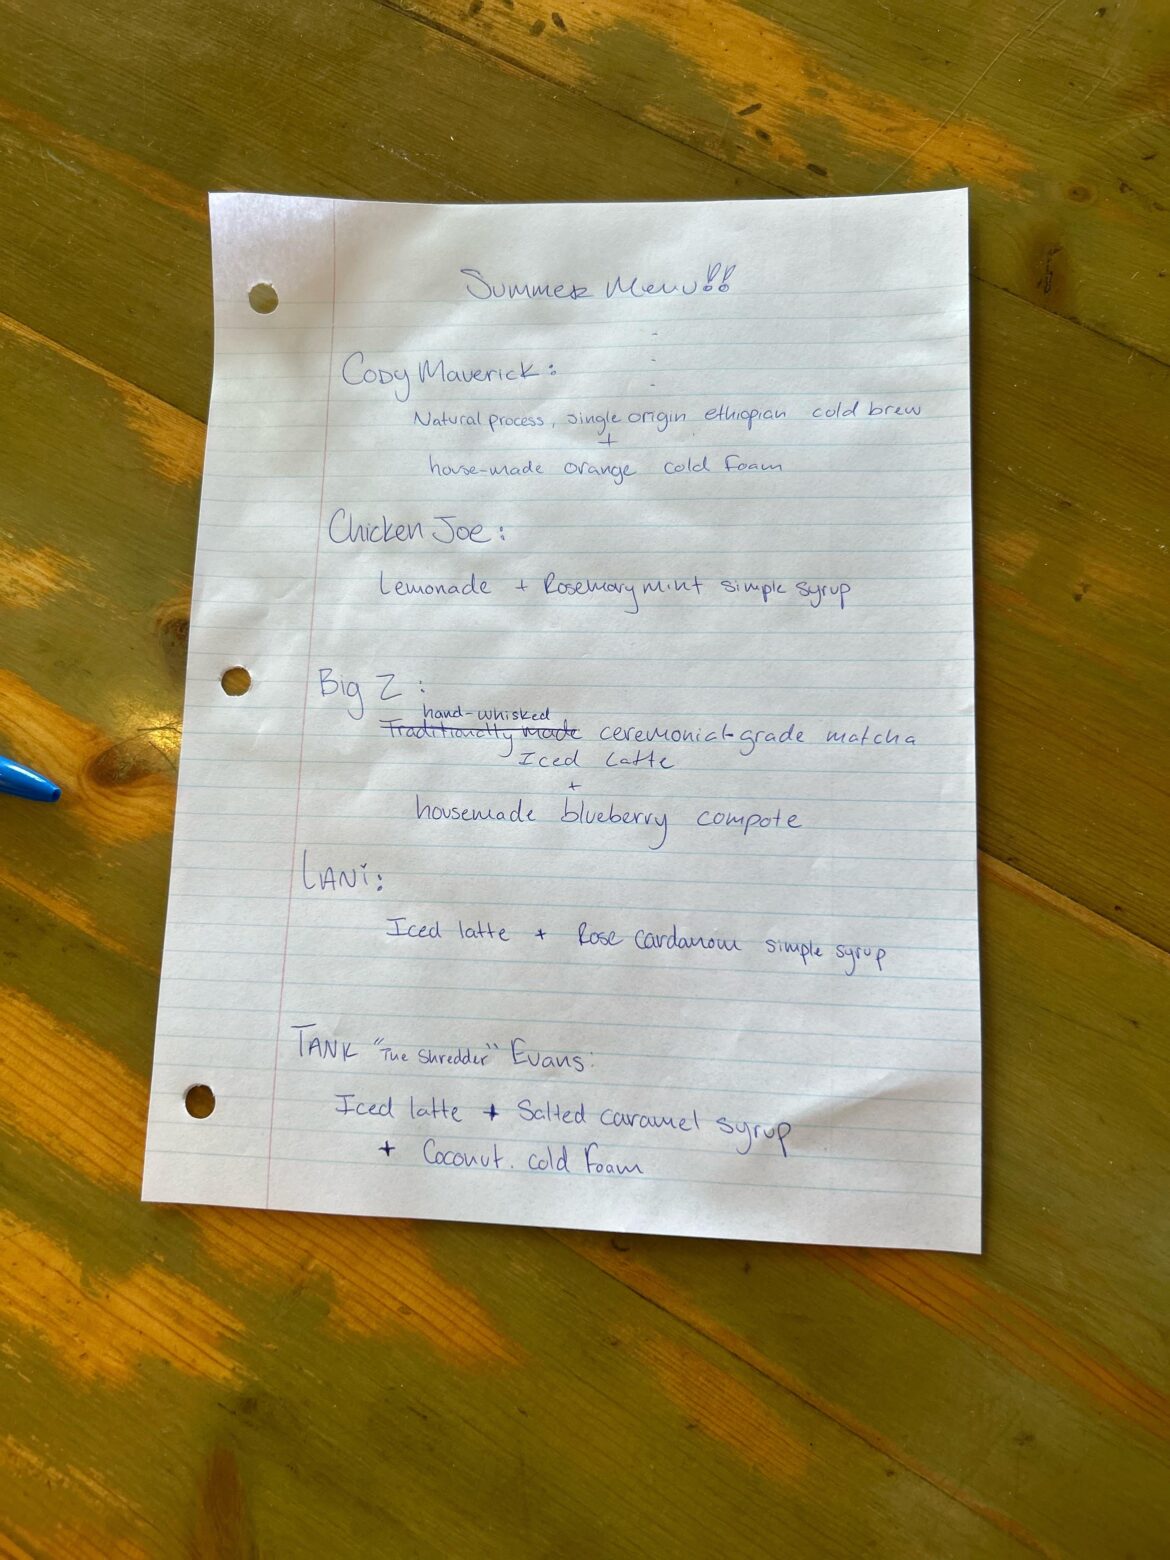 Summer Menu!!
Cody Maverick:
Natural process, single origin ethiopian cold brew
+
house-made orange cold foam
Chicken Joe:
Lemonade + Rosemary mint simple syrup
Big Z:
hand-whisked
Traditionally made ceremonial-grade matcha
Iced Latte
+
housemade blueberry compote
LANi:
Iced latte + Rose cardamom simple syrup
TANK "The Shredder" Evans:
Iced latte + Salted caramel syrup
+ Coconut. cold foam